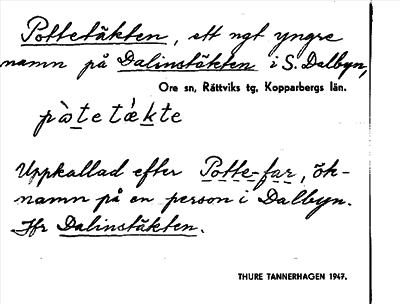 Pottetäkten, ett ngt yngre
namn på Dalinstäkten i S. Dalbyn,
Ore sn, Rättviks tg. Kopparbergs län.
pàte tǽkte
Uppkallad efter Potte-far, ök-
namn på en person i Dalbyn.
Jfr Dalinstäkten.
THURE TANNERHAGEN 1947.